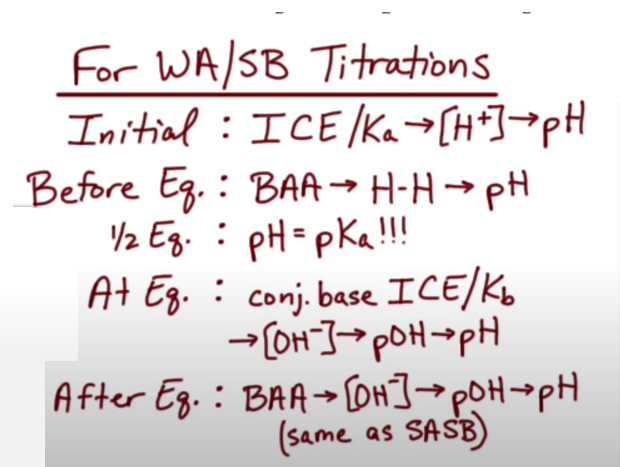 For WA/SB Titrations
Initial : ICE/Ka→[H⁺]→pH
Before Eq. : BAA→ H-H → pH
1/2 Eq. : pH = pKa!!!
At Eq. : conj. base ICE/Kb
→[OH⁻]→pOH→pH
After Eq. : BAA→[OH⁻]→pOH→pH
(same as SASB)